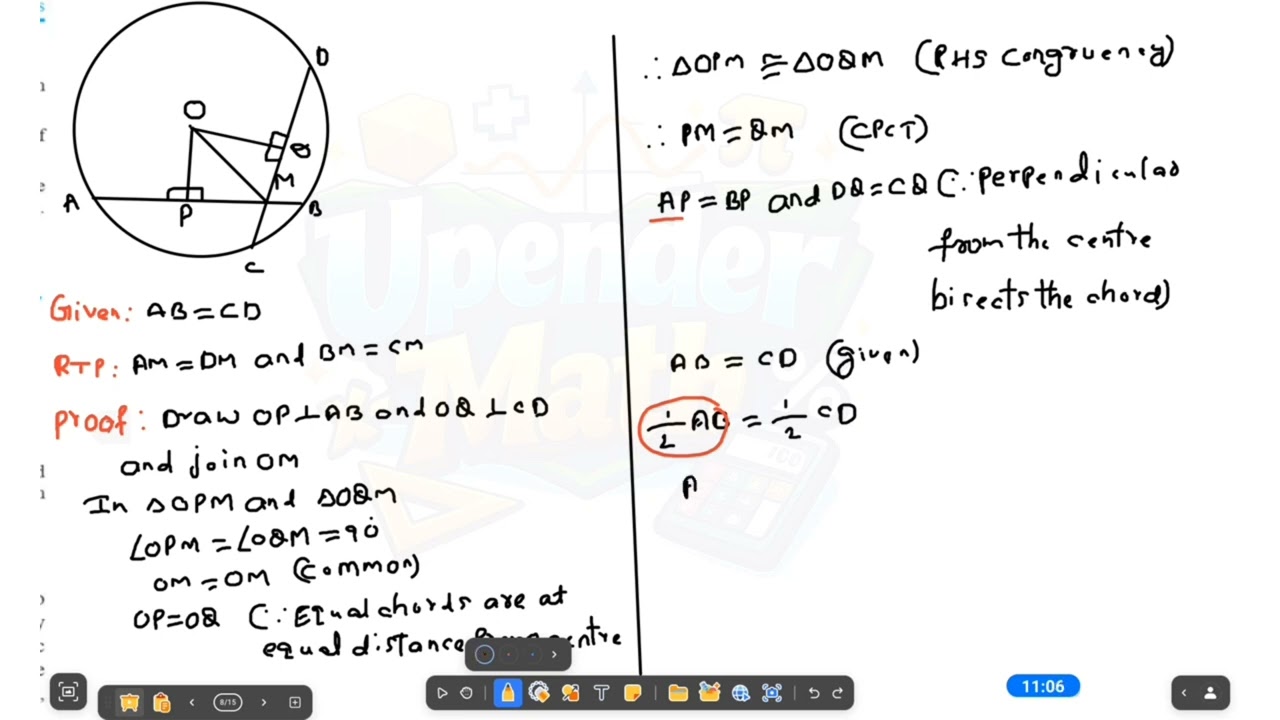 D
O
Q
M
A
P
B
C
Given: AB = CD
RTP: AM = DM and BM = CM
Proof: Draw OP ⊥ AB and OQ ⊥ CD
and join OM
In △OPM and △OQM
∠OPM = ∠OQM = 90°
OM = OM (common)
OP = OQ (∵ Equal chords are at
equal distance centre
∴ △OPM ≅ △OQM (RHS congruency)
∴ PM = QM (CPCT)
AP = BP and DQ = CQ (∵ perpendicular
from the centre
bisects the chord)
AB = CD (given)
1/2 AB = 1/2 CD
A
Upender
Math
8/15
T
11:06